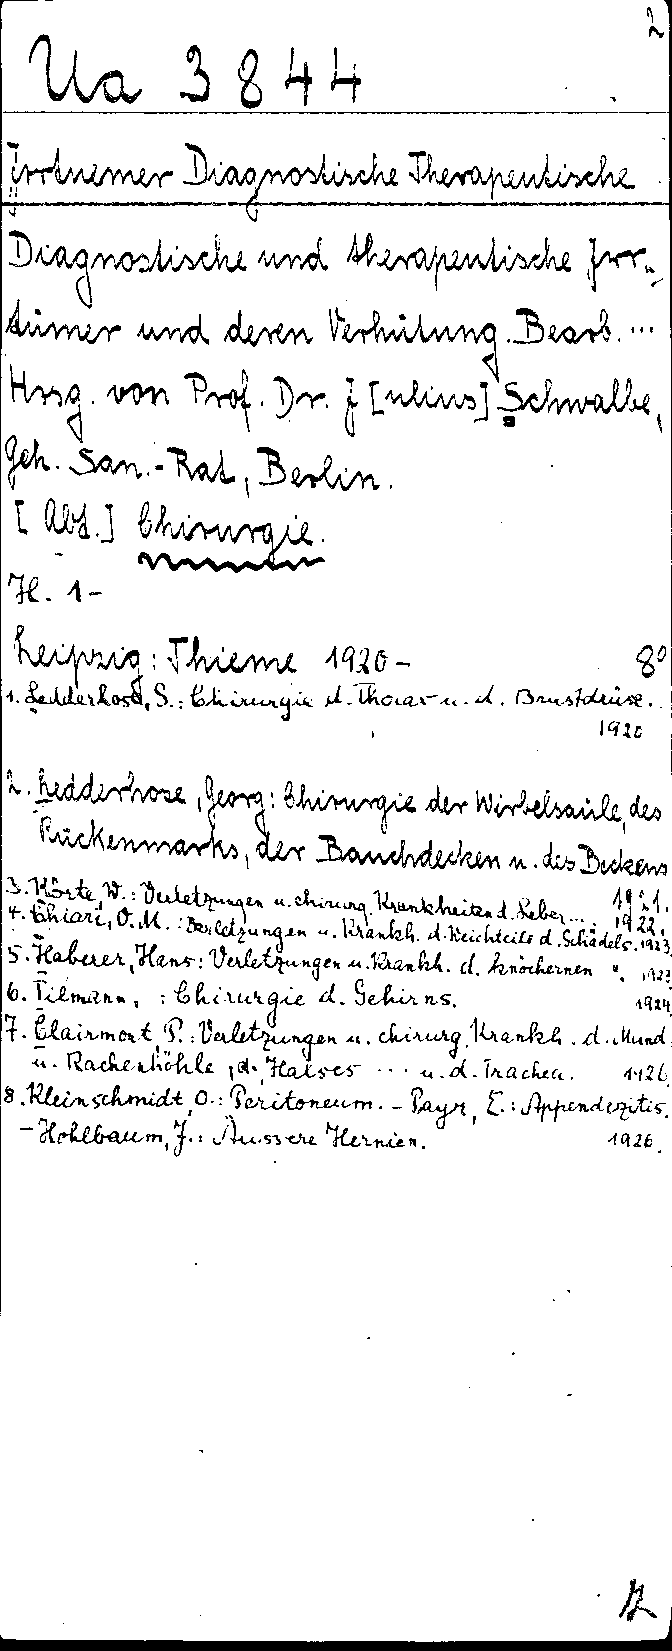 2
Ua 3844
Irrtuemer Diagnostische Therapeutische
Diagnostische und therapeutische Irr-
tümer und deren Verhütung. Bearb. ...
Hrsg. von Prof. Dr. J[ulius] Schwalbe,
Geh. San.-Rat, Berlin.
[Abt.] Chirurgie.
H. 1-
Leipzig: Thieme 1920- 8°
1. Ledderhose, S.: Chirurgie d. Thorax u. d. Brustdrüse.
1920
2. Ledderhose, Georg: Chirurgie der Wirbelsäule, des
Rückenmarks, der Bauchdecken u. des Beckens
1921.
3. Körte, W.: Verletzungen u. chirurg. Krankheiten d. Leber... 1922.
4. Chiari, O. M.: Verletzungen u. Krankh. d. Weichteile d. Schädels. 1923
5. Haberer, Hans: Verletzungen u. Krankh. d. knöchernen ". 1923
6. Tilmann, : Chirurgie d. Gehirns. 1924
7. Clairmont, P.: Verletzungen u. chirurg. Krankh. d. Mund
u. Rachenhöhle, d. Halses ... u. d. Trachea. 1926
8. Kleinschmidt, O.: Peritoneum. - Payr, E.: Appendizitis.
- Hohlbaum, J.: Äussere Hernien. 1926.